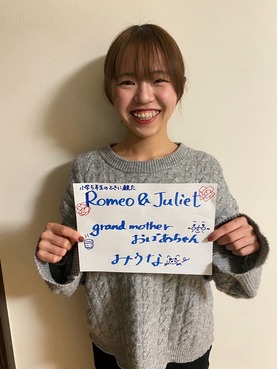 小学5年生のときに観た
Romeo & Juliet
grand mother
おばあちゃん
みうな